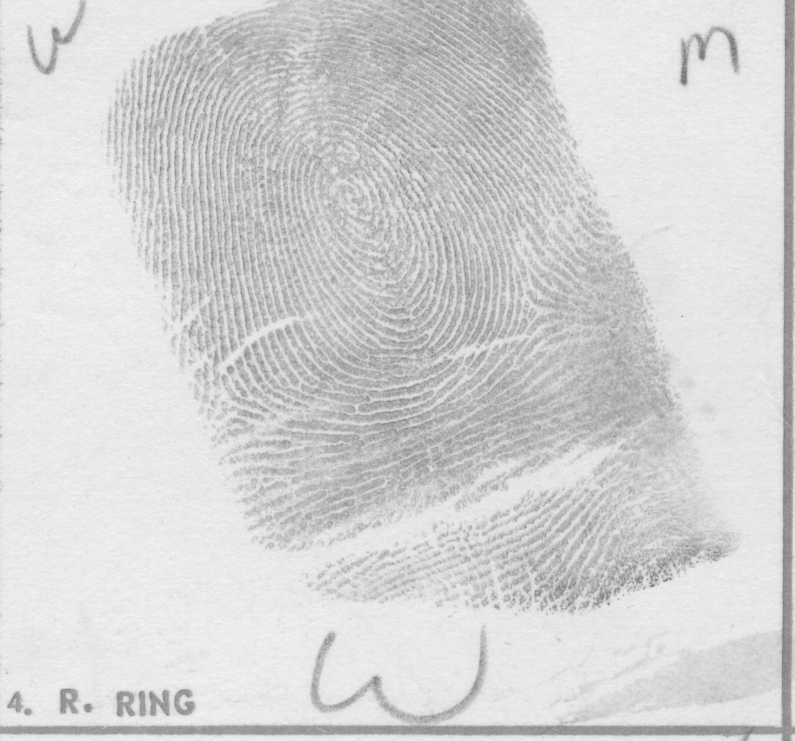 W m
W
4. R. RING